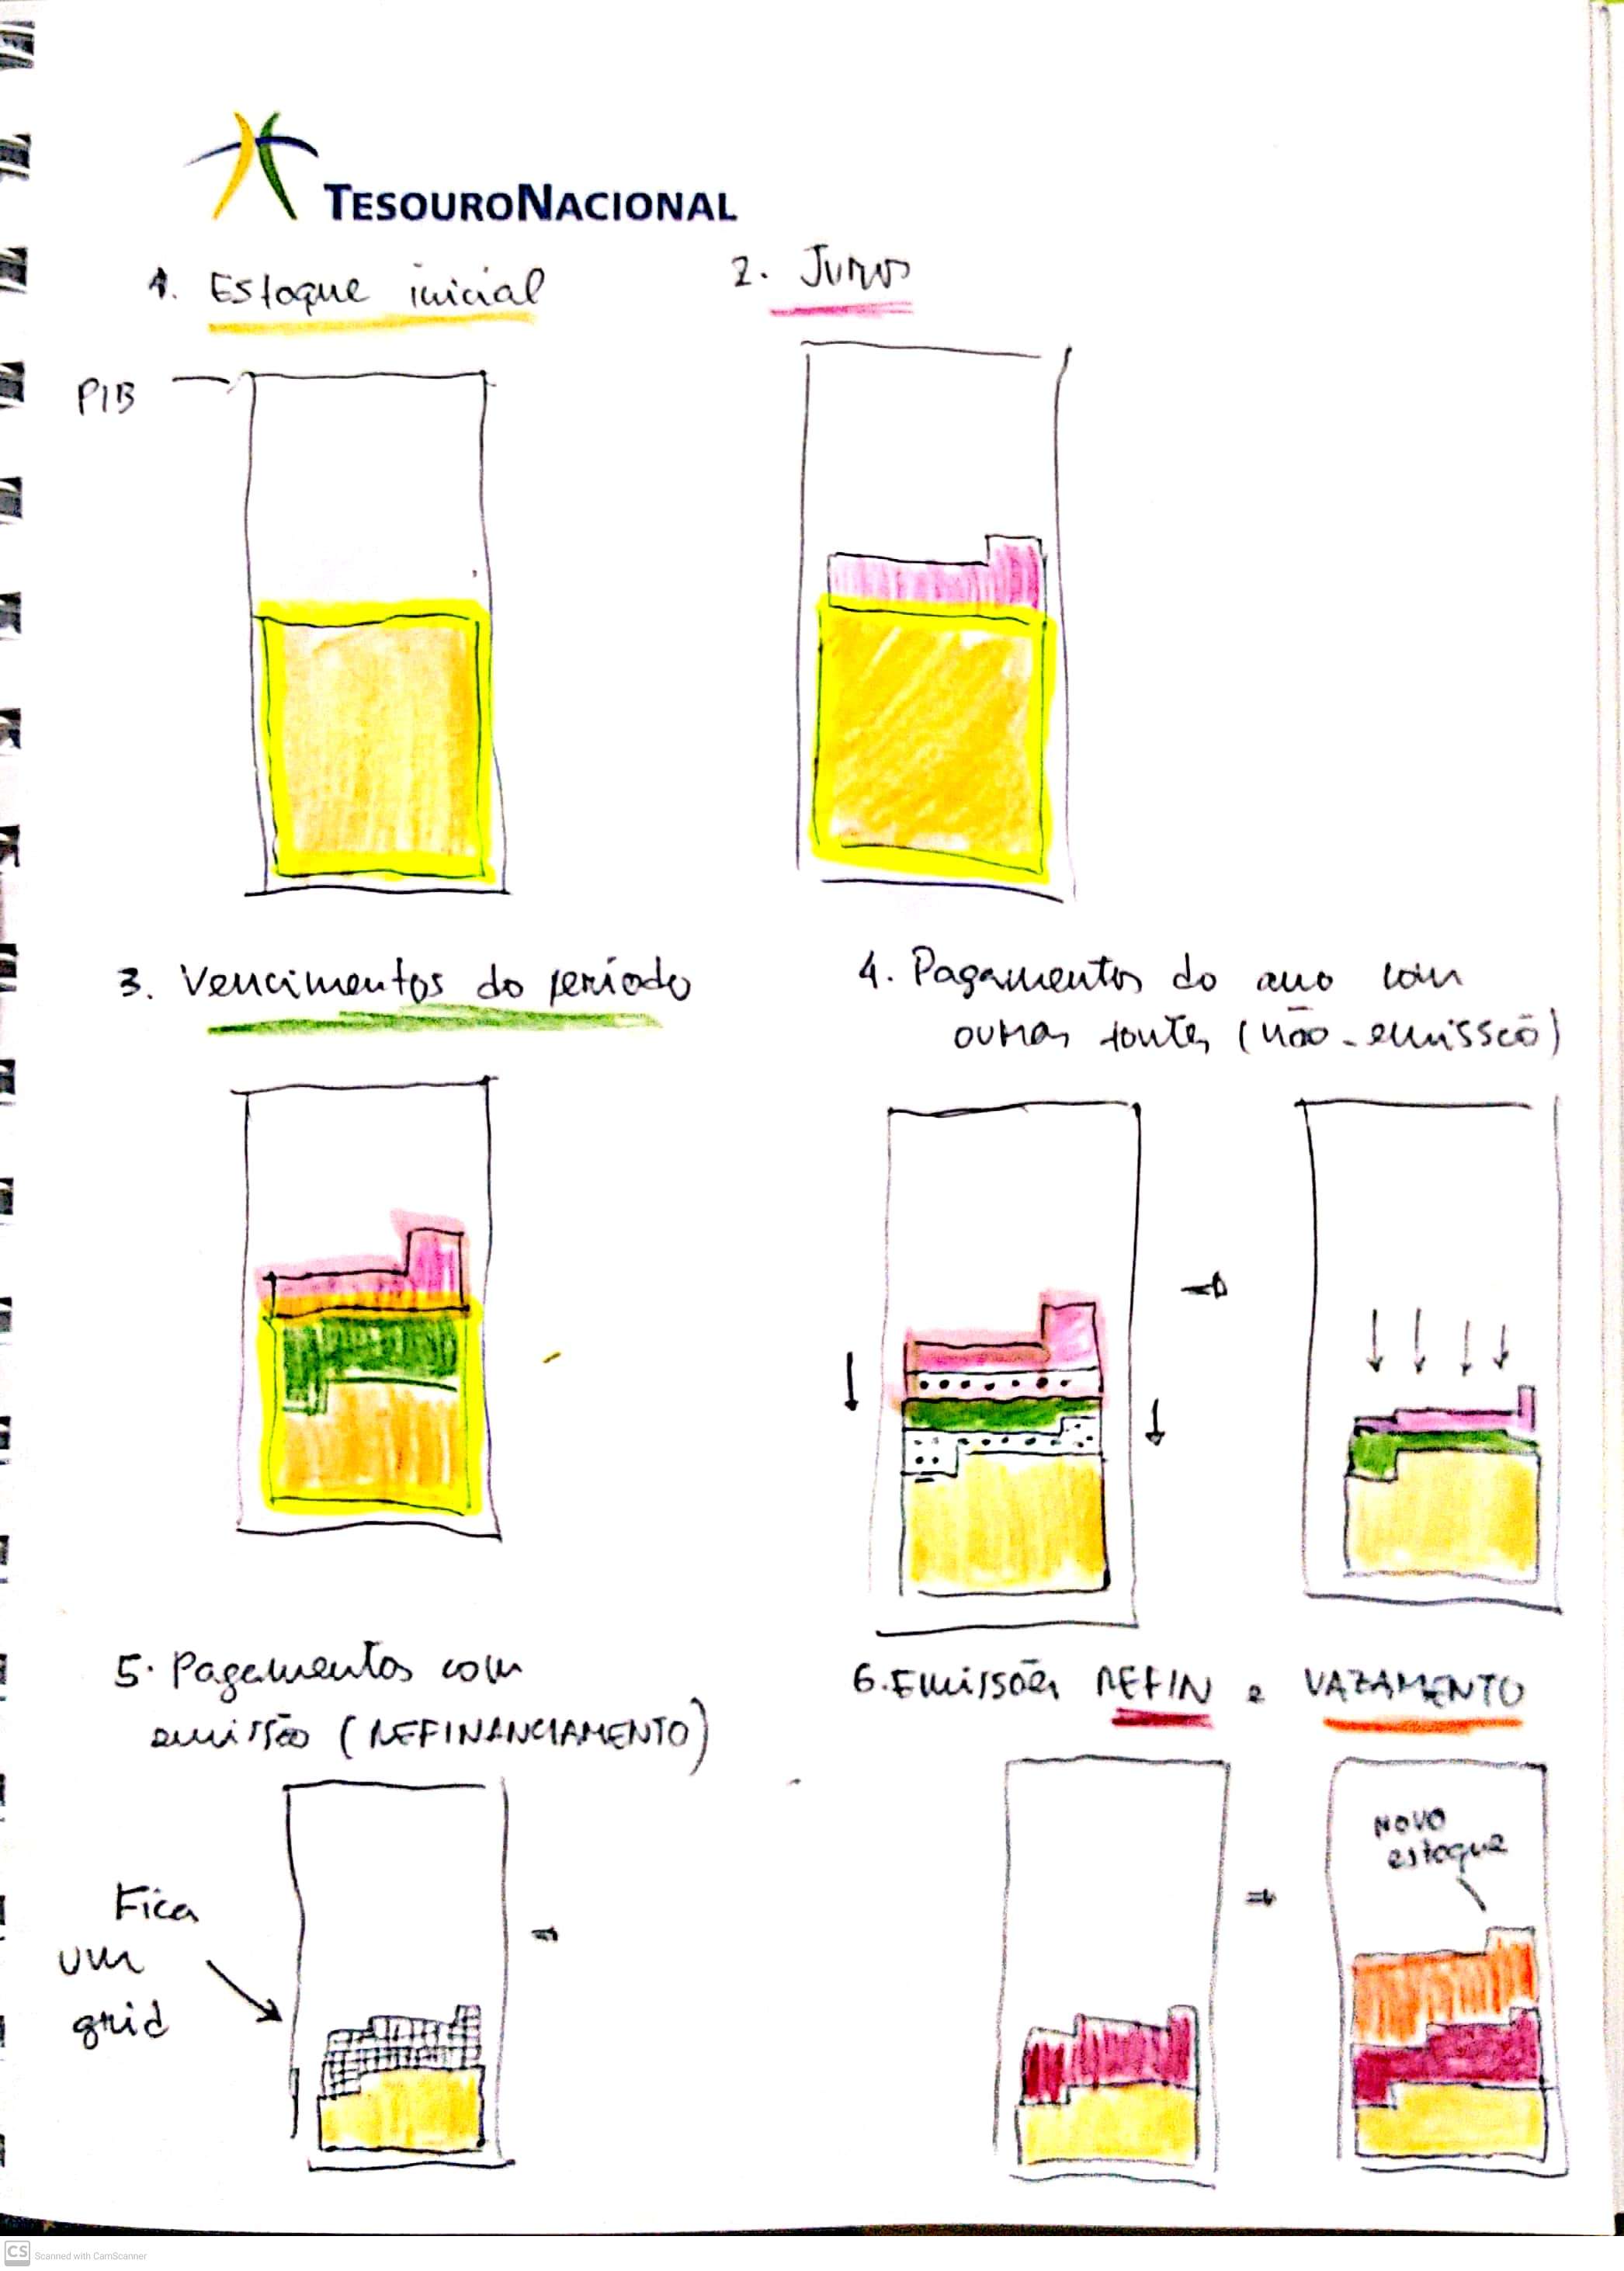 TESOURONACIONAL
1. Estoque inicial
2. Juros
PIB
3. Vencimentos do período
4. Pagamentos do ano com
outras fontes (não-emissão)
5. Pagamentos com
emissão (REFINANCIAMENTO)
6. Emissões REFIN e VAZAMENTO
Novo
estoque
Fica
um
grid
CS Scanned with CamScanner